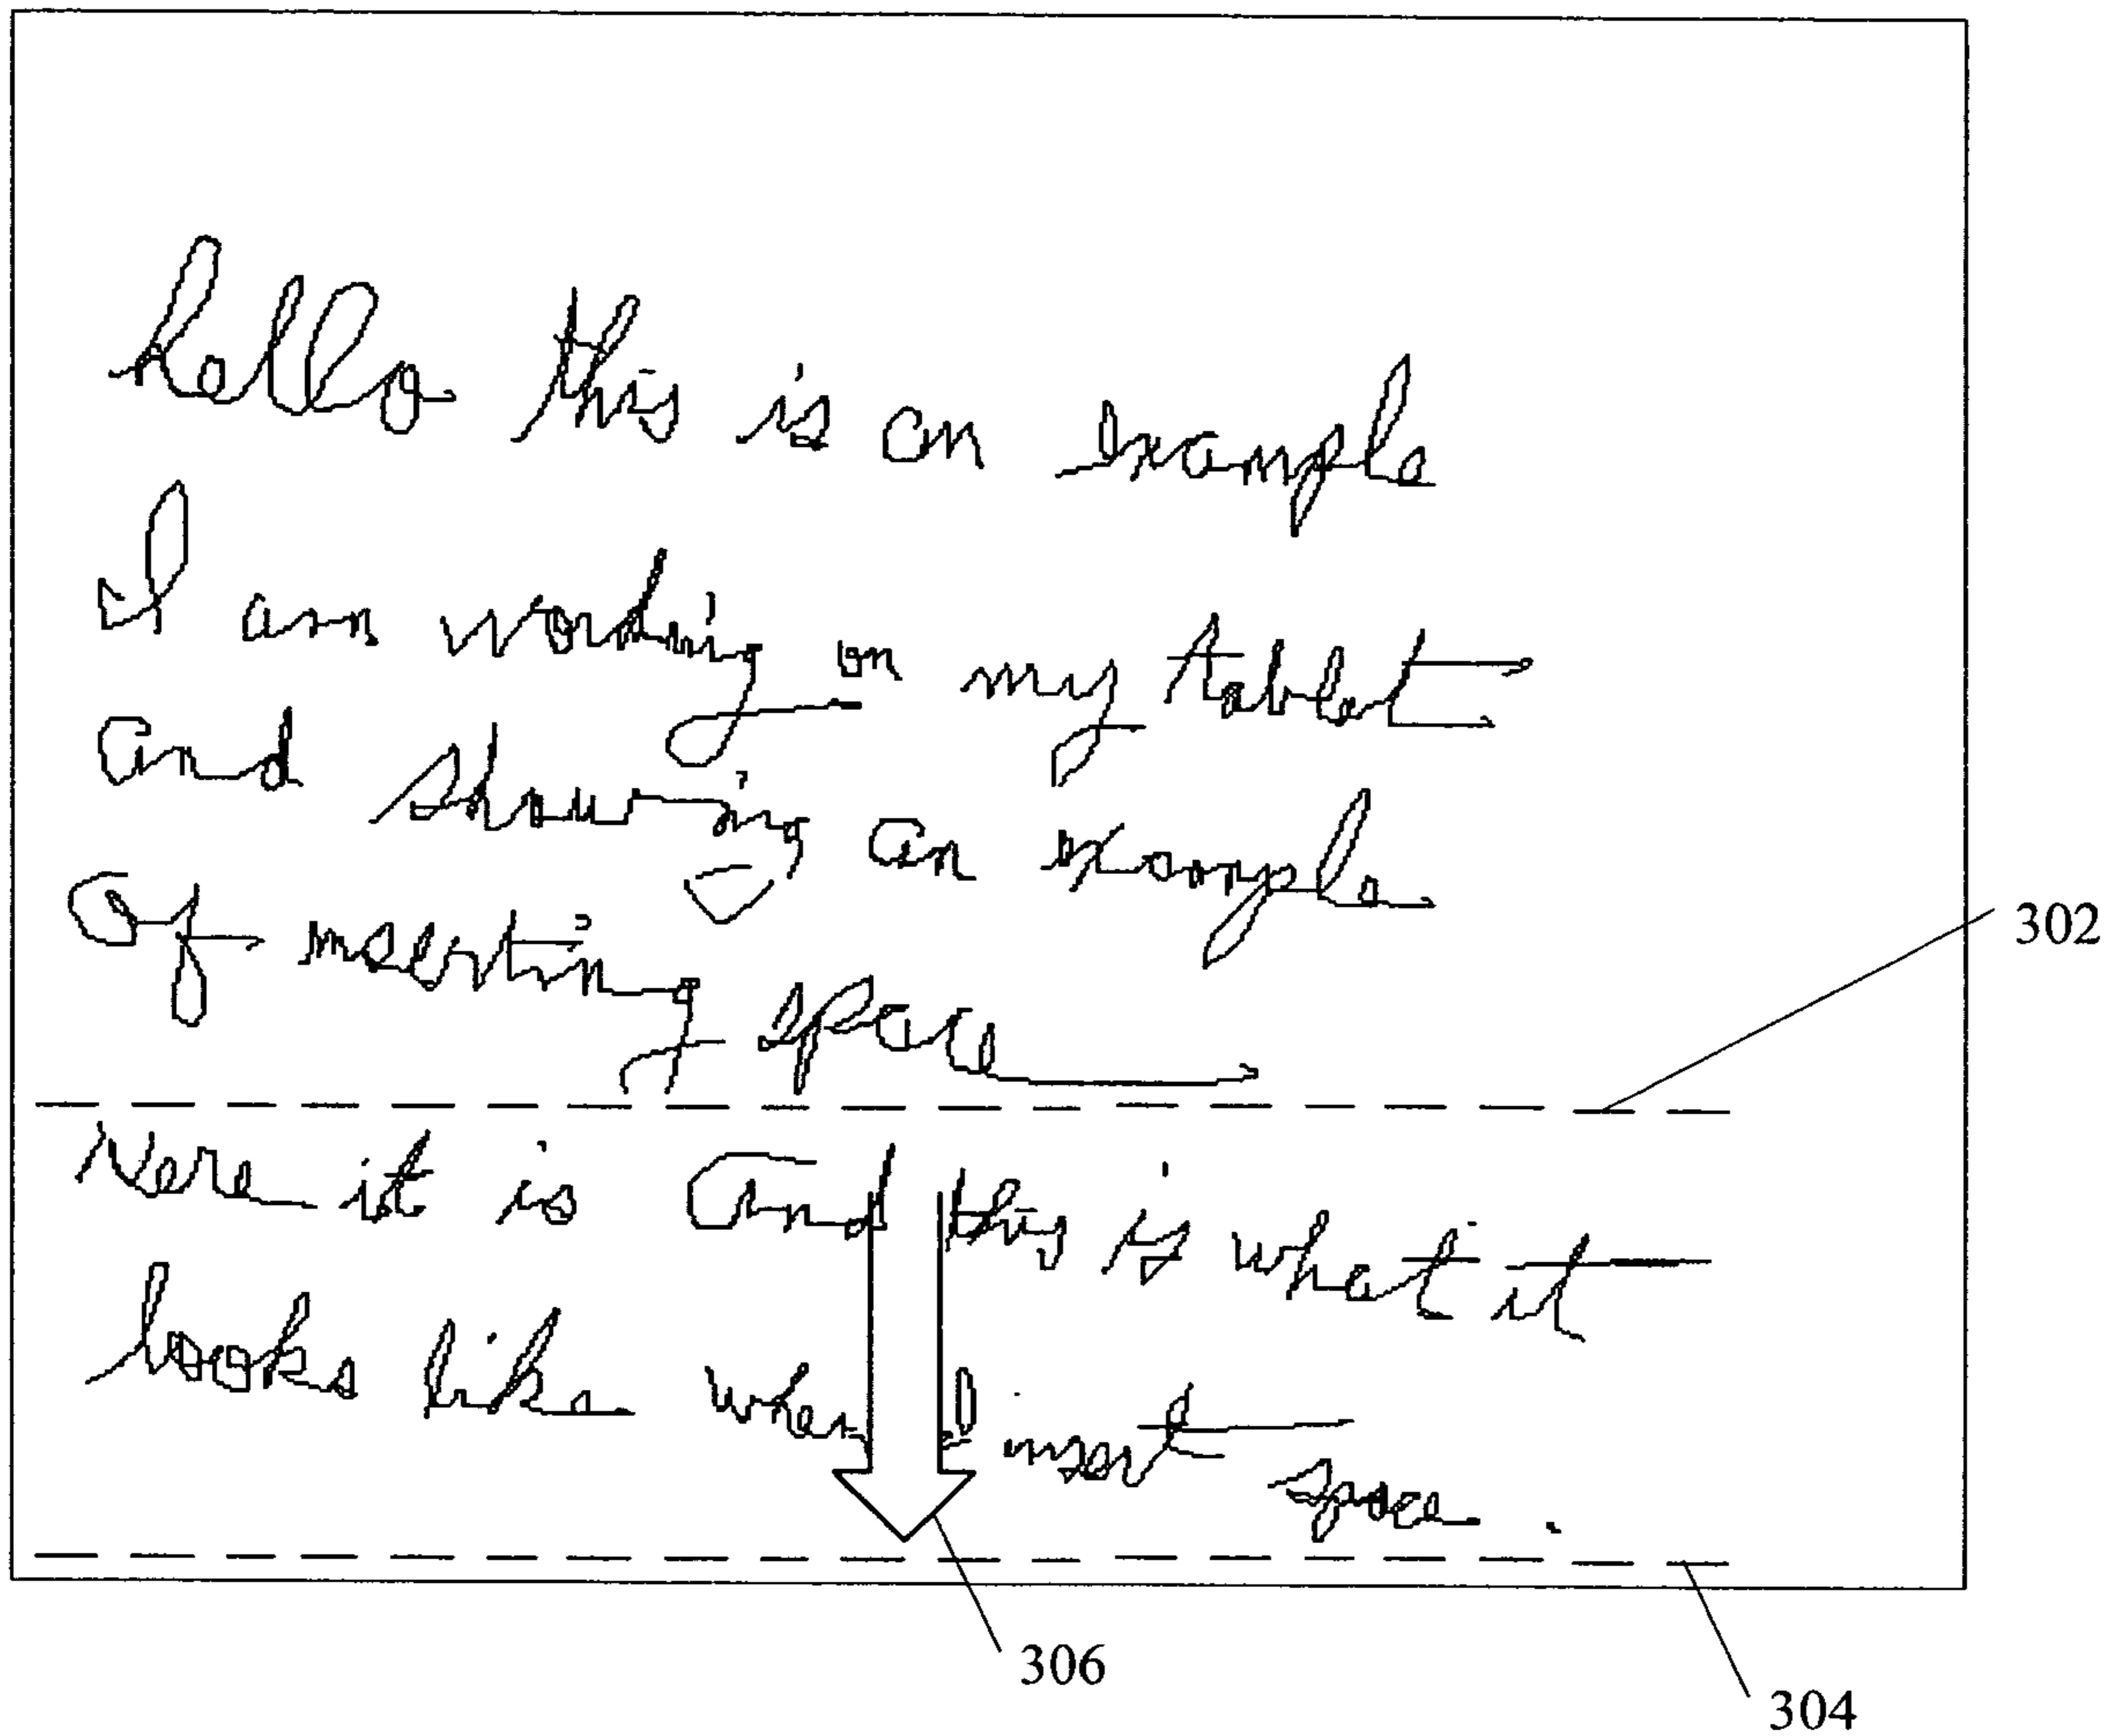 hello this is an example
I am working on my tablet
and showing an example
of inserting space
302
Here it is and this is what it
looks like when I insert space.
306
304